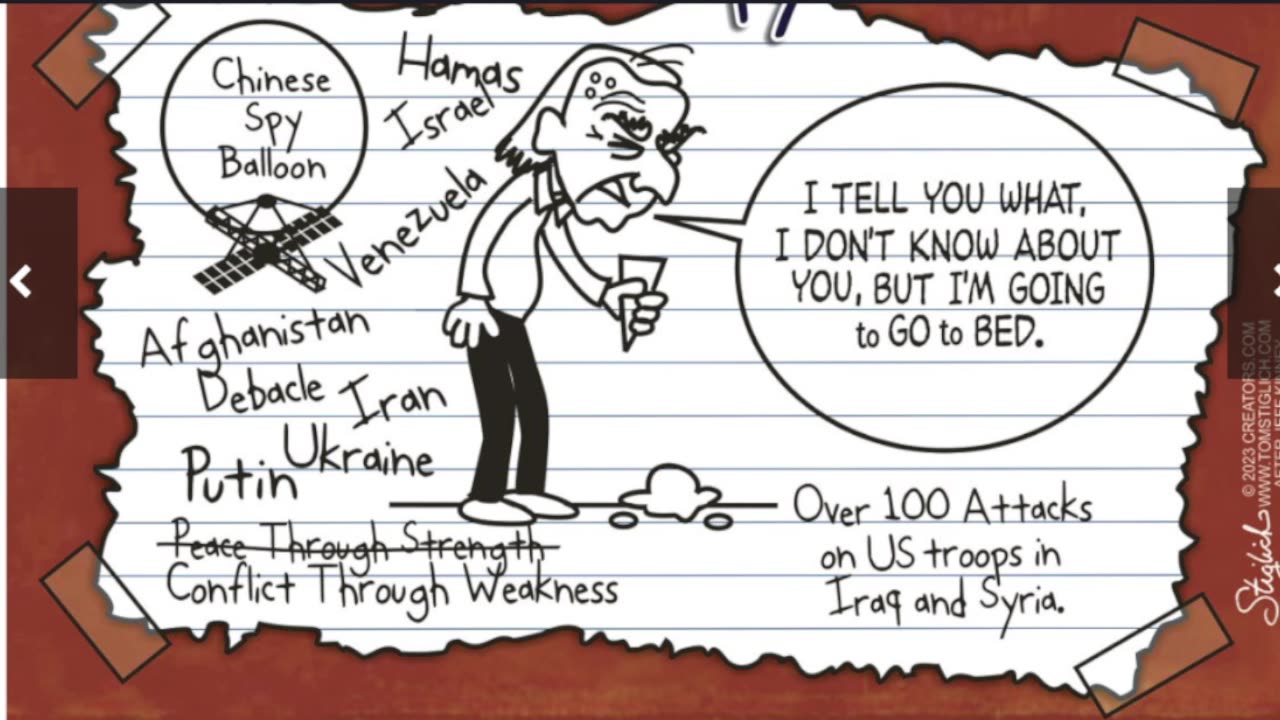 Chinese
Spy
Balloon
Hamas
Israel
Venezuela
Afghanistan
Debacle
Iran
Ukraine
Putin
Peace Through Strength
Conflict Through Weakness
I TELL YOU WHAT,
I DON'T KNOW ABOUT
YOU, BUT I'M GOING
to GO to BED.
Over 100 Attacks
on US troops in
Iraq and Syria.
© 2023 CREATORS.COM
WWW.TOMSTIGLICH.COM
Stiglich